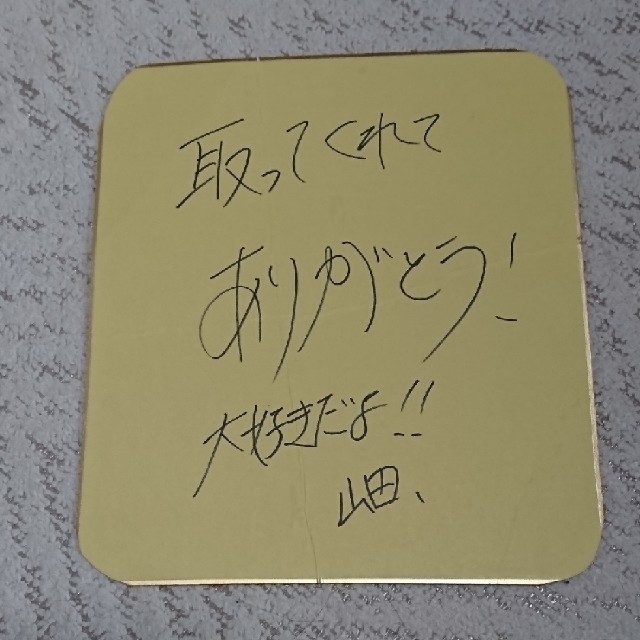 取ってくれて
ありがとう!
大好きだよ!!
山田、